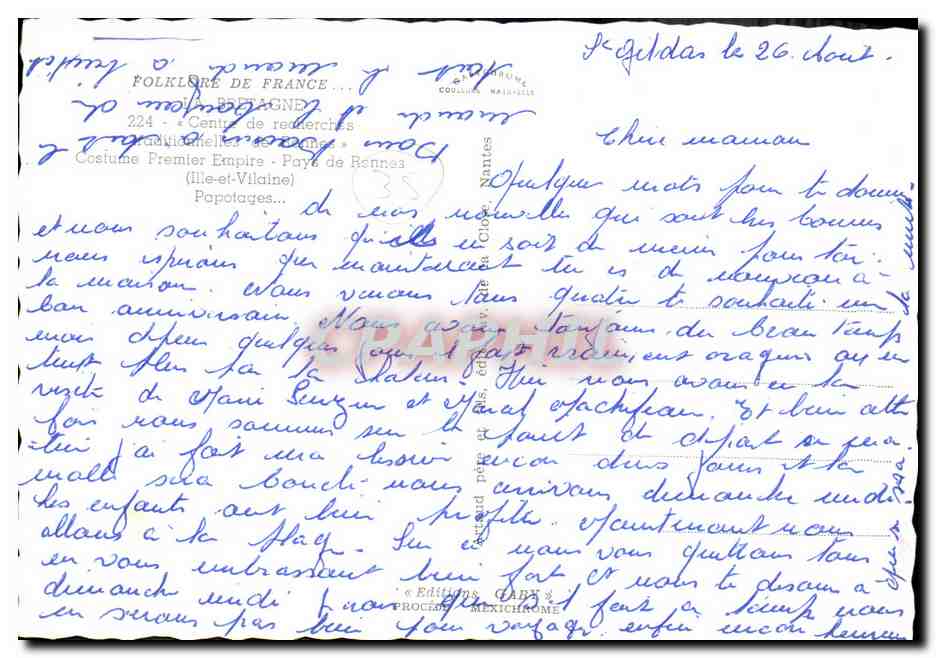 St Gildas le 26 Aout.
FOLKLORE DE FRANCE...
LA BRETAGNE
224 - « Centre de recherches
traditionnelles de Rennes »
Costume Premier Empire - Pays de Rennes
(Ille-et-Vilaine)
Papotages...
MEXICHROME
COULEURS NATURELLES
35
Chère maman
Quelques mots pour te donner
de nos nouvelles qui sont très bonnes
et nous souhaitons qu'elles en soit de même pour toi.
nous espérons que maintenant tu es de nouveau à
la maison. Nous venons tous quatre te souhaiter un
bon anniversaire. Nous avons toujours du beau temps
mais depuis quelques jours il fait vraiment orageux on en
peut plus par la chaleur. Hier nous avons eu la
visite de Marie et. Et bien cette
fois nous sommes sur le point de départ
j'ai fait ma lessive encore deux jours et la
malle sera bouclé nous arrivons dimanche midi
les enfants ont bien profité. Maintenant nous
allons à la plage. Sur ce nous vous quittons tous
en vous embrassant bien fort et nous te disons à
dimanche midi nous fait ce temps nous
en serons pas bien pour voyager enfin encore heureux
Artaud père et fils, édit., av. de la Close, Nantes
« Editions GABY »
PROCÉDÉ MEXICHROME
CPAPHIL